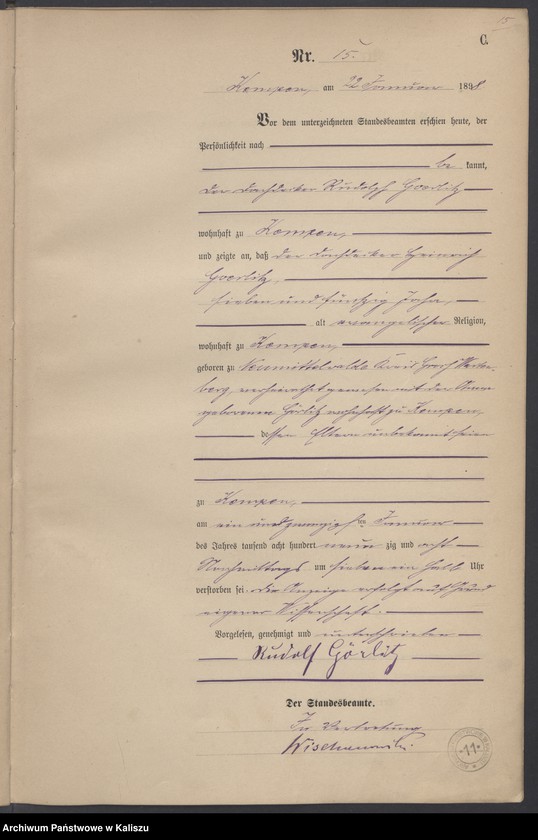 15
C.
Nr. 15.
Kempen, am 22 Januar 1898
Vor dem unterzeichneten Standesbeamten erschien heute, der
Persönlichkeit nach
be kannt,
der Dachdecker Rudolph Goerlitz
wohnhaft zu Kempen,
und zeigte an, daß der Dachdecker Heinrich
Goerlitz,
sieben und fünfzig Jahr,
alt evangelischer Religion,
wohnhaft zu Kempen,
geboren zu Neumittelwalde Kreis Groß Warten-
berg, verheirathet gewesen mit der
geborenen Görlitz wohnhaft zu Kempen,
dessen Eltern unbekannt seien
zu Kempen,
am ein und zwanzigsten Januar
des Jahres tausend acht hundert neun zig und acht
Nachmittags um sieben ein halb Uhr
verstorben sei. Die Anzeige erfolgt auf Grund
eigener Wissenschaft.
Vorgelesen, genehmigt und unterschrieben
Rudolf Görlitz
Der Standesbeamte.
In Vertretung
11
Archiwum Państwowe w Kaliszu